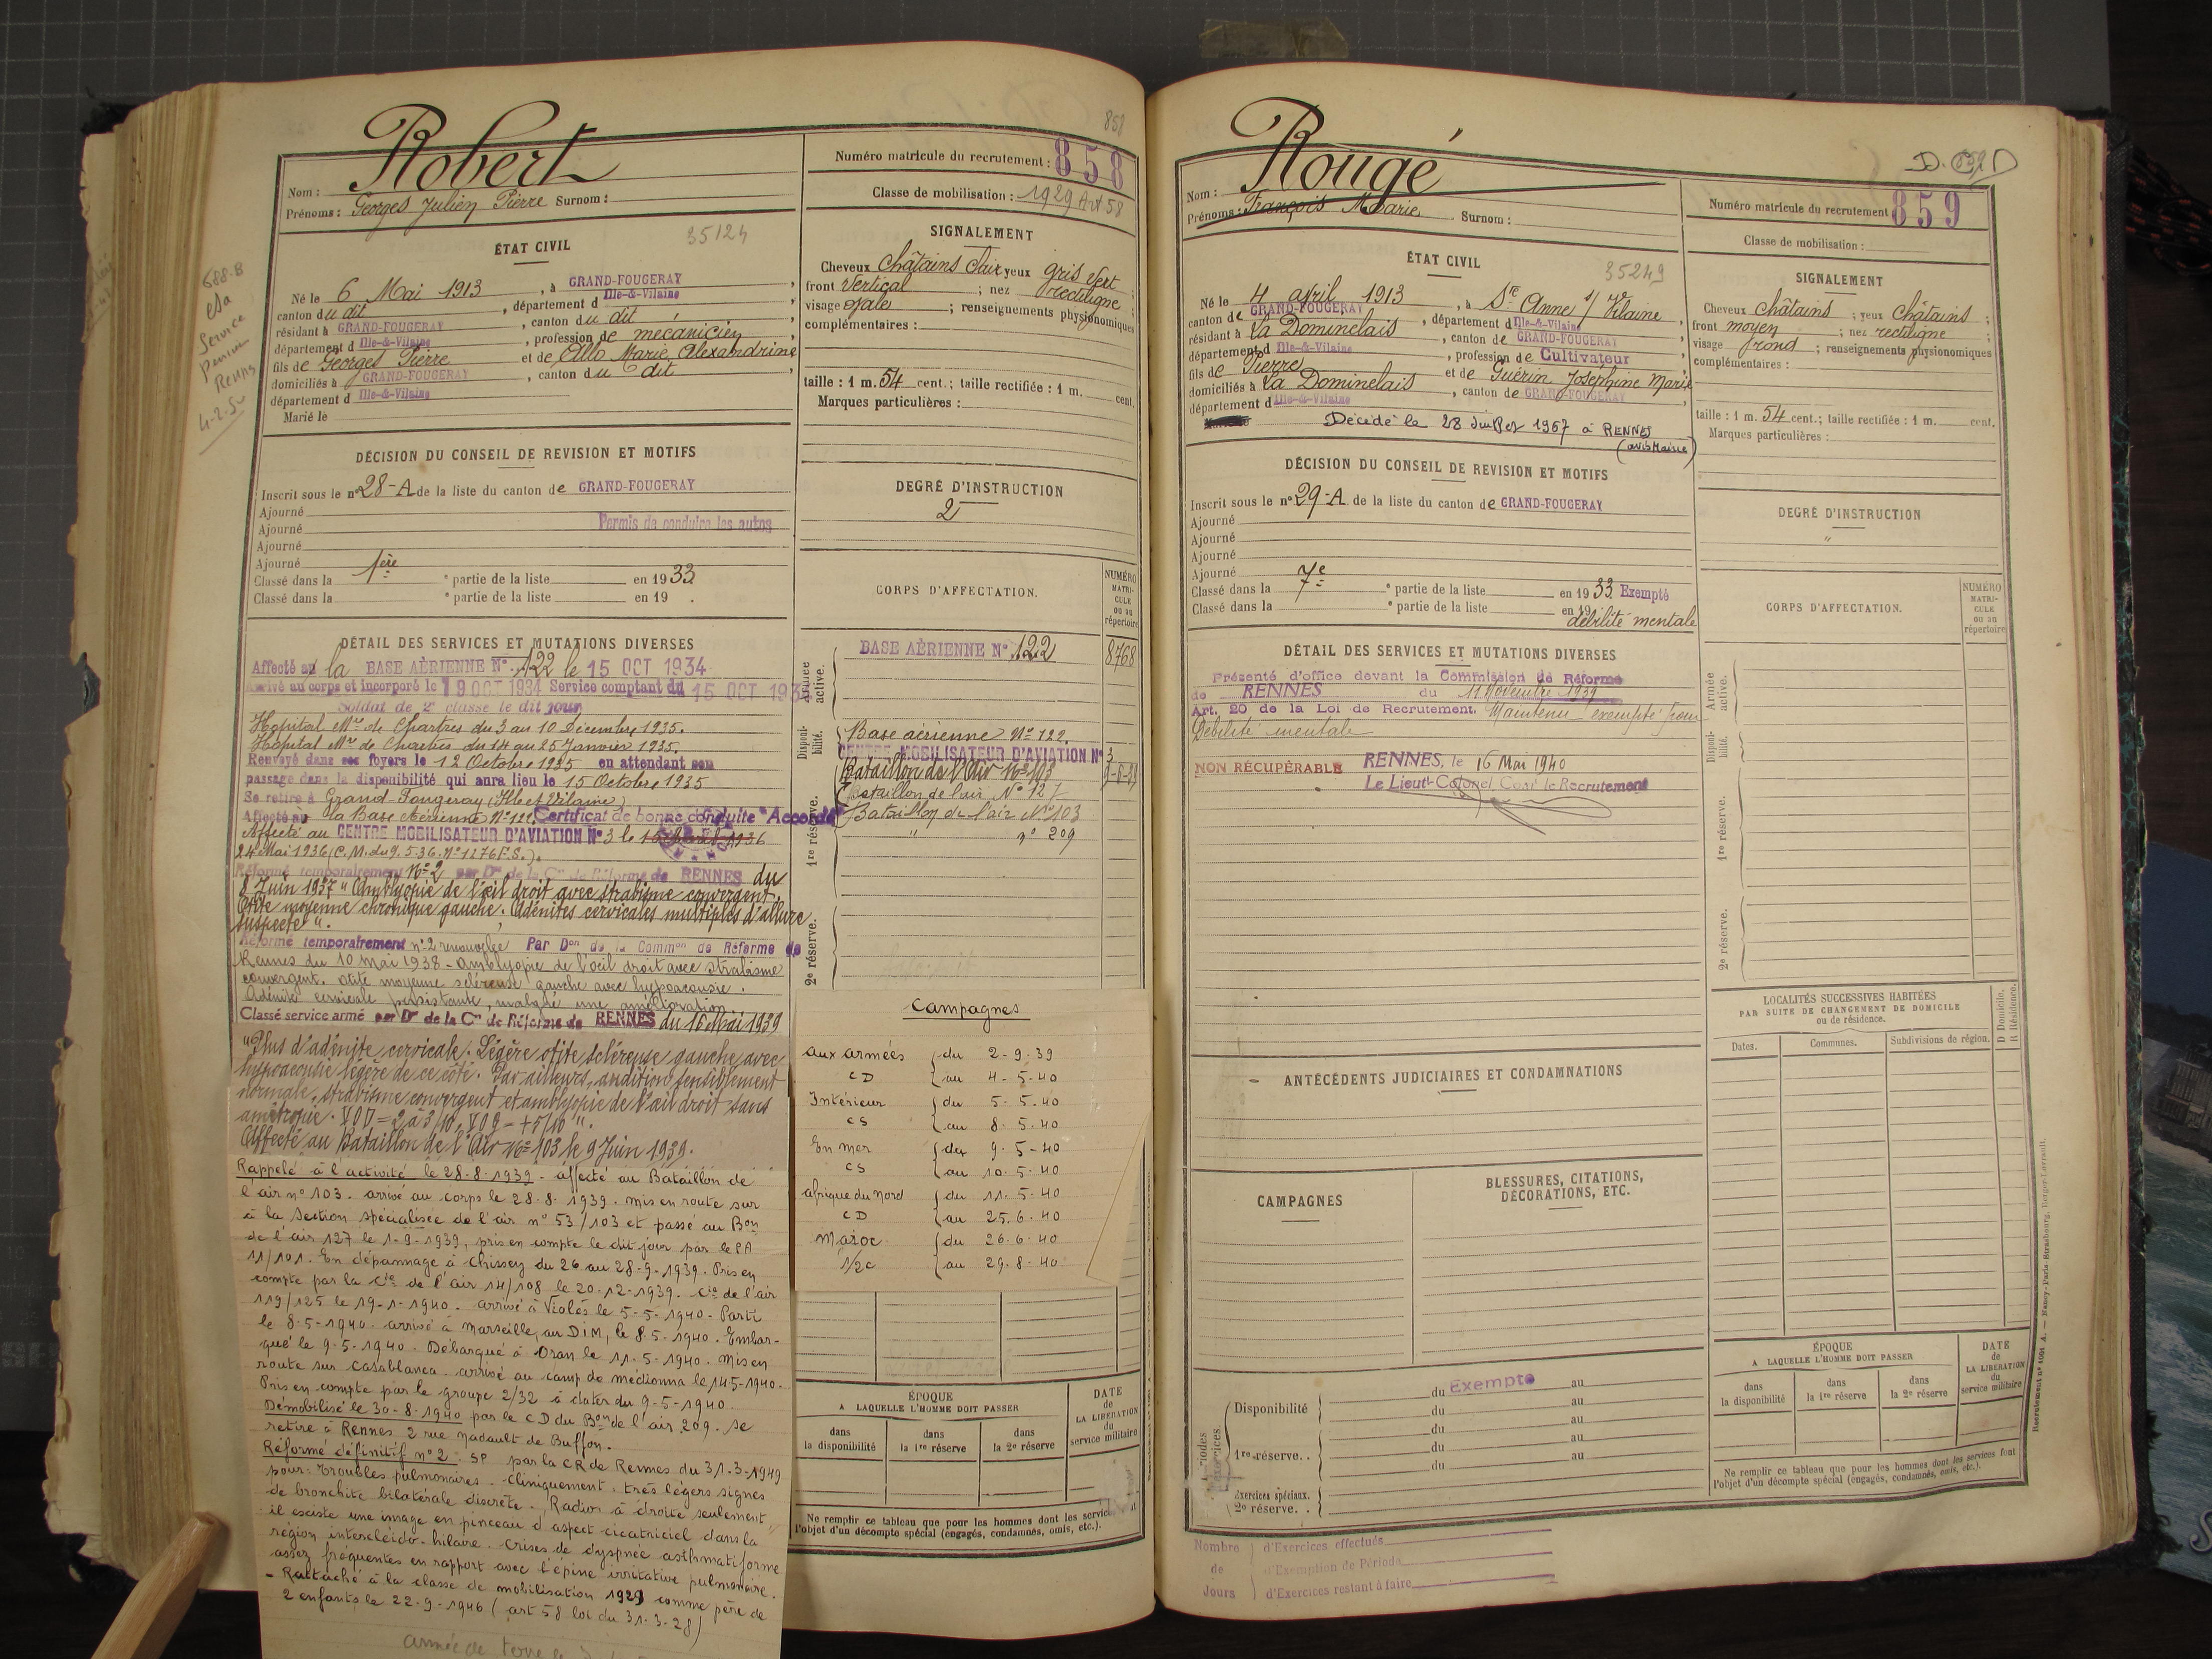 858
Robert
Nom :
Prénoms : Georges Julien Pierre Surnom :
35124
ÉTAT CIVIL
Né le 6 Mai 1913, à GRAND-FOUGERAY,
canton du dit, département d Ille-&-Vilaine,
résidant à GRAND-FOUGERAY, canton du dit,
département d Ille-&-Vilaine, profession de mécanicien
fils de Georges Pierre et de Allo Marie Alexandrine
domiciliés à GRAND-FOUGERAY, canton du dit,
département d Ille-&-Vilaine
Marié le
688-B
Service
Pension
Rennes
4-2-50
DÉCISION DU CONSEIL DE REVISION ET MOTIFS
Inscrit sous le n° 28-A de la liste du canton de GRAND-FOUGERAY
Ajourné
Ajourné Permis de conduire les autos
Ajourné
Ajourné
Classé dans la 1ère partie de la liste en 1933
Classé dans la e partie de la liste en 19 .
DÉTAIL DES SERVICES ET MUTATIONS DIVERSES
Affecté au la BASE AÉRIENNE N° 122 le 15 OCT 1934
Arrivé au corps et incorporé le 19 OCT 1934 Service comptant du 15 OCT 1934
Soldat de 2e classe le dit jour
Hopital Mre de Chartres du 3 au 10 Décembre 1935.
Hopital Mre de Chartres du 14 au 25 Janvier 1935.
Renvoyé dans ses foyers le 12 Octobre 1935 en attendant son
passage dans la disponibilité qui aura lieu le 15 Octobre 1935
Se retire à Grand-Fougeray (Ille et Vilaine)
Affecté à la Base Aérienne N° 122. Certificat de bonne conduite "Accordé"
Affecté au CENTRE MOBILISATEUR D'AVIATION N° 3 le 1936
24 Mai 1936 (C.M. du 9.5.36. N° 1276 F.S.).
Réformé temporairement N° 2 par Don de la Con de Réforme de RENNES du
8 Juin 1937 "Amblyopie de l'œil droit avec strabisme convergent.
Otite moyenne chronique gauche. Adénites cervicales multiples d'allure
suspecte".
Réformé temporairement n° 2 renouvelée Par Don de la Common de Réforme de
Rennes du 10 mai 1938 - Amblyopie de l'œil droit avec strabisme
convergent. otite moyenne scléreuse gauche avec hypoacousie.
Adénite cervicale persistante, malgré une amélioration
Classé service armé par Don de la Con de Réforme de RENNES du 16 Mai 1939
"Plus d'adénite cervicale. Légère otite scléreuse gauche avec
hypoacousie légère de ce côté. Par ailleurs, audition sensiblement
normale, strabisme convergent et amblyopie de l'œil droit sans
amétropie. VOD = 2 à 3/10, VOG = +5/10".
Affecté au Bataillon de l'Air N° 103 le 9 Juin 1939.
Rappelé à l'activité le 28-8-1939 - affecté au Bataillon de
l'air n° 103. arrivé au corps le 28-8-1939. mis en route sur
à la section spécialisée de l'air n° 53/103 et passé au Bon
de l'air 127 le 1-9-1939, pris en compte le dit jour par le PA
11/101. En dépannage à Chissey du 26 au 28-9-1939. Pris en
compte par la Cie de l'air 14/108 le 20-12-1939. Cie de l'air
119/125 le 19-1-1940. arrivé à Violès le 5-5-1940. Parti
le 8-5-1940. arrivé à Marseille, au DIM, le 8-5-1940. Embar-
qué le 9-5-1940. Débarqué à Oran le 11-5-1940. Mis en
route sur Casablanca. arrivé au camp de Mediouna le 14-5-1940.
Pris en compte par le groupe 2/32 à dater du 9-5-1940.
Démobilisé le 30-8-1940 par le CD du Bon de l'air 209. se
retire à Rennes 2 rue Nadault de Buffon.
Réformé définitif n° 2 : SP par la CR de Rennes du 31-3-1949
pour : troubles pulmonaires. cliniquement. très légers signes
de bronchite bilatérale discrète. Radios à droite seulement
il existe une image en pinceau d'aspect cicatriciel dans la
région intercléido-hilaire. crises de dyspnée asthmatiforme
assez fréquentes en rapport avec l'épine irritative pulmonaire.
- Rattaché à la classe de mobilisation 1929 comme père de
2 enfants le 22-9-1946 (art 58 loi du 31-3-28)
armée de terre le
Numéro matricule du recrutement : 858
Classe de mobilisation : 1929 Art 58
SIGNALEMENT
Cheveux Châtains clair yeux gris vert
front vertical ; nez rectiligne ;
visage ovale ; renseignements physionomiques
complémentaires :
taille : 1 m. 54 cent. ; taille rectifiée : 1 m. cent.
Marques particulières :
DEGRÉ D'INSTRUCTION
2
CORPS D'AFFECTATION.
NUMÉRO MATRICULE ou au répertoire
Armée active.
BASE AÉRIENNE N° 122 8768
Disponibilité.
Base aérienne N° 122.
CENTRE MOBILISATEUR D'AVIATION N° 3
1re réserve.
Bataillon de l'Air N° 103
Bataillon de l'air N° 127
Bataillon de l'air N° 103
" n° 209
2e réserve.
Campagnes
aux armées du 2-9-39
CD au 4-5-40
Intérieur du 5-5-40
CS au 8-5-40
En mer du 9-5-40
CS au 10-5-40
afrique du Nord du 11-5-40
CD au 25.6-40
Maroc du 26-6-40
1/2c au 29-8-40
ÉPOQUE
A LAQUELLE L'HOMME DOIT PASSER
DATE de LA LIBÉRATION du service militaire
dans la disponibilité
dans la 1re réserve
dans la 2e réserve
Ne remplir ce tableau que pour les hommes dont les services
l'objet d'un décompte spécial (engagés, condamnés, omis, etc.).
Rougé
Nom :
Prénoms : François Marie Surnom :
35249
ÉTAT CIVIL
Né le 4 avril 1913, à Ste Anne s/ Vilaine
canton de GRAND-FOUGERAY, département d Ille-&-Vilaine,
résidant à La Dominelais, canton de GRAND-FOUGERAY
département d Ille-&-Vilaine, profession de Cultivateur
fils de Pierre et de Guérin Joséphine Marie
domiciliés à La Dominelais, canton de GRAND-FOUGERAY
département d Ille-&-Vilaine
Décédé le 28 Juillet 1967 à RENNES
(avis Mairie)
DÉCISION DU CONSEIL DE REVISION ET MOTIFS
Inscrit sous le n° 29-A de la liste du canton de GRAND-FOUGERAY
Ajourné
Ajourné
Ajourné
Ajourné
Classé dans la 7e partie de la liste en 1933 Exempté
Classé dans la e partie de la liste en 19
débilité mentale
DÉTAIL DES SERVICES ET MUTATIONS DIVERSES
Présenté d'office devant la Commission de Réforme
de RENNES du 11 Novembre 1939
Art. 20 de la Loi de Recrutement. Maintenu exempté pour
Débilité mentale
NON RÉCUPÉRABLE RENNES, le 16 Mai 1940
Le Lieut-Colonel Com' le Recrutement
ANTÉCÉDENTS JUDICIAIRES ET CONDAMNATIONS
CAMPAGNES
BLESSURES, CITATIONS, DÉCORATIONS, ETC.
Disponibilité du Exempté au
du au
du au
1re réserve. . du au
du au
Exercices spéciaux.
2e réserve. .
Nombre de Jours
d'Exercices effectués
d'Exemption de Période
d'Exercices restant à faire
Numéro matricule du recrutement 859
Classe de mobilisation :
SIGNALEMENT
Cheveux châtains ; yeux châtains ;
front moyen ; nez rectiligne ;
visage rond ; renseignements physionomiques
complémentaires :
taille : 1 m. 54 cent. ; taille rectifiée : 1 m. cent.
Marques particulières :
DEGRÉ D'INSTRUCTION
"
CORPS D'AFFECTATION.
NUMÉRO MATRICULE ou au répertoire
Armée active.
Disponibilité.
1re réserve.
2e réserve.
LOCALITÉS SUCCESSIVES HABITÉES
PAR SUITE DE CHANGEMENT DE DOMICILE
ou de résidence.
D Domicile. R Résidence.
Dates. Communes. Subdivisions de région.
ÉPOQUE
A LAQUELLE L'HOMME DOIT PASSER
DATE de LA LIBÉRATION du service militaire
dans la disponibilité
dans la 1re réserve
dans la 2e réserve
Ne remplir ce tableau que pour les hommes dont les services font
l'objet d'un décompte spécial (engagés, condamnés, omis, etc.).